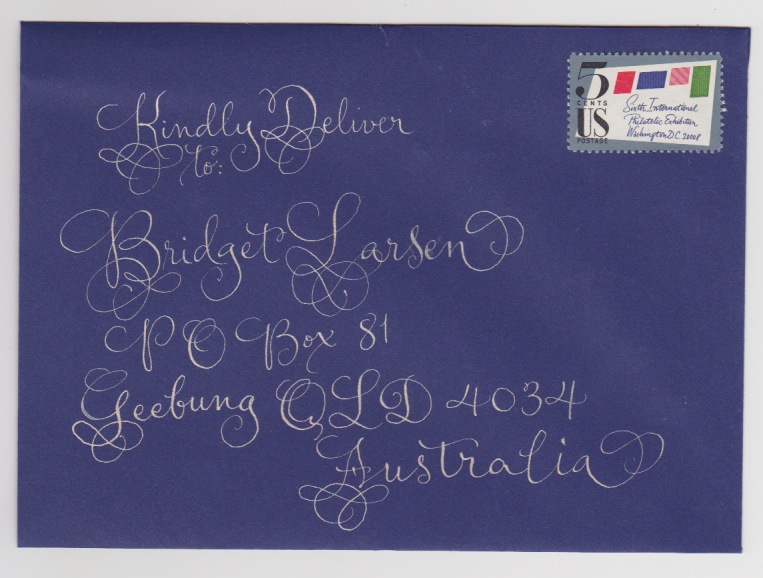 5
CENTS
US
POSTAGE
Sixth International
Philatelic Exhibition
Washington D.C. 20008
Kindly Deliver
to:
Bridget Larsen
PO Box 81
Geebung QLD 4034
Australia